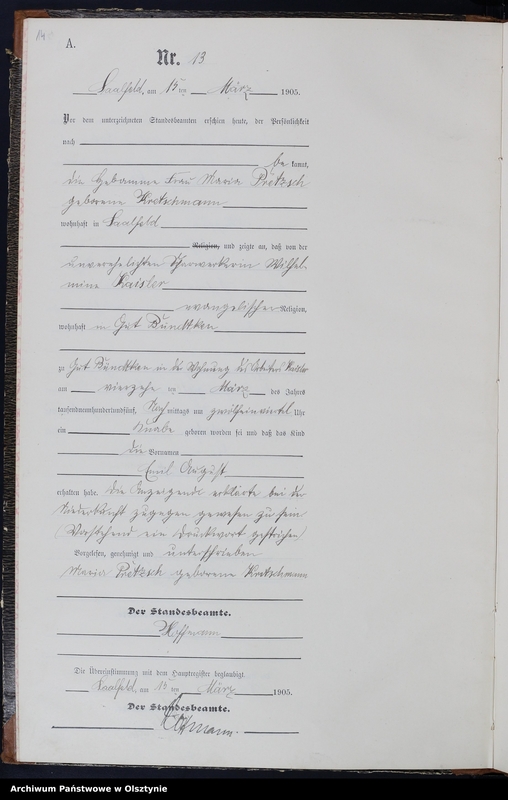 A.
Nr. 13
Saalfeld, am 15ten März 1905.
Vor dem unterzeichneten Standesbeamten erschien heute, der Persönlichkeit
nach
be kannt,
die Hebamme Frau Maria Pretzsch
geborene Kretschmann
wohnhaft in Saalfeld
Religion, und zeigte an, daß von der
unverehelichten Scharwerkerin Wilhel-
mine Kaisler
evangelischer Religion,
wohnhaft in Gut
zu Gut in der Wohnung des
am vierzehn ten März des Jahres
tausendneunhundertundfünf, Nachmittags um zwölfeinviertel Uhr
ein Knabe geboren worden sei und daß das Kind
die Vornamen
Emil August
erhalten habe. Die Anzeigende erklärte bei der
Niederkunft zugegen gewesen zu sein
Vorstehend ein Druckwort gestrichen
Vorgelesen, genehmigt und unterschrieben
Maria Pretzsch geborene Kretschmann
Der Standesbeamte.
Hoffmann
Die Übereinstimmung mit dem Hauptregister beglaubigt
Saalfeld, am 15ten März 1905.
Der Standesbeamte.
Hoffmann.
Archiwum Państwowe w Olsztynie